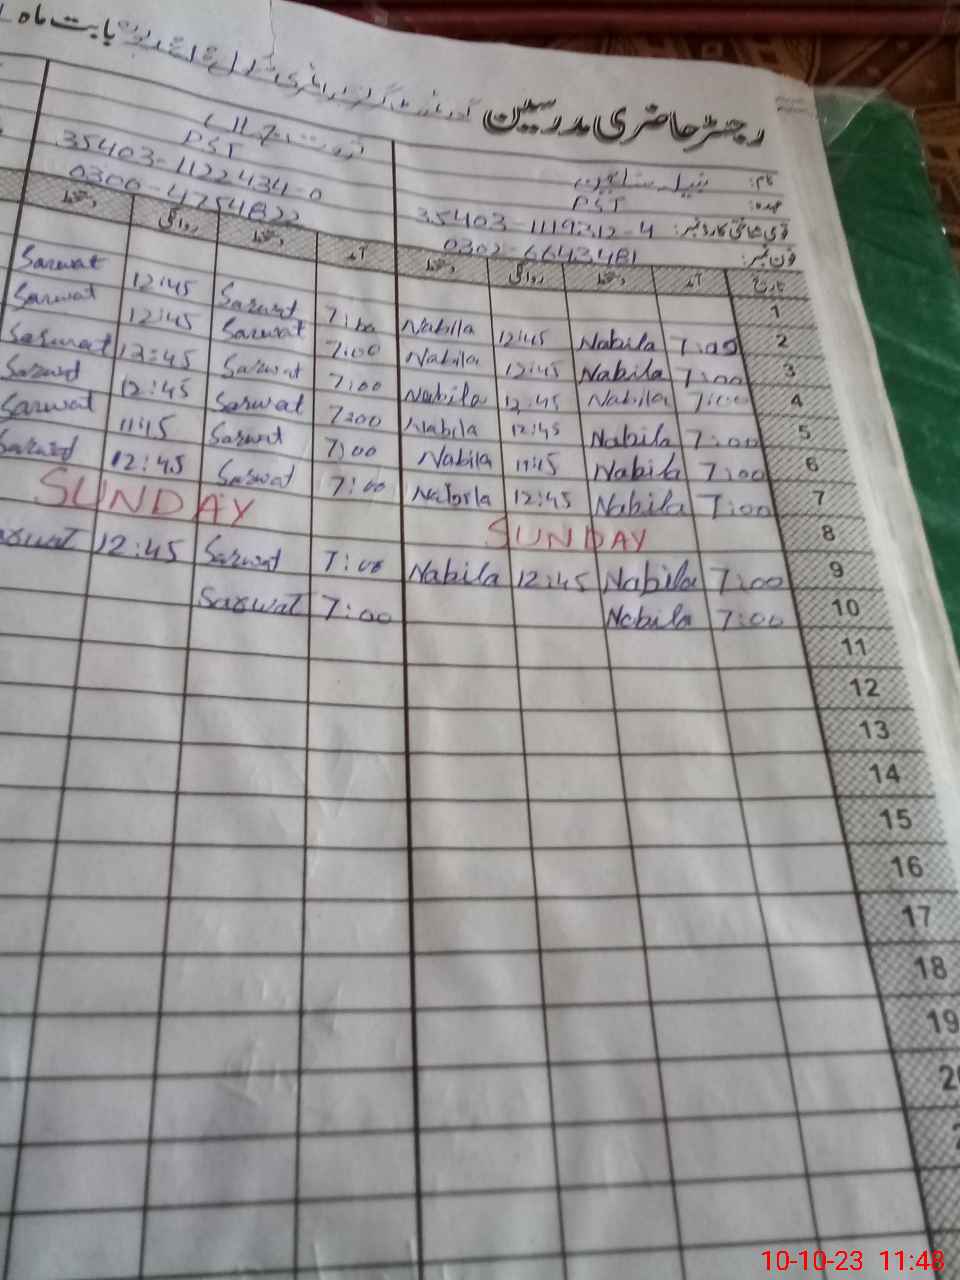 رجسٹر حاضری مدرسین
بابت ماہ
نام:
عہدہ: PST PST
قومی شناختی کارڈ نمبر: 35403-1119312-4 35403-1122434-0
فون نمبر: 0302-6643481 0300-4754822
تاریخ آمد دستخط روانگی دستخط آمد دستخط روانگی دستخط
1
2 7:00 Nabila 12:45 Nabila 7:00 Sarwat 12:45 Sarwat
3 7:00 Nabila 12:45 Nabila 7:00 Sarwat 12:45 Sarwat
4 7:00 Nabila 12:45 Nabila 7:00 Sarwat 12:45 Sarwat
5 7:00 Nabila 12:45 Nabila 7:00 Sarwat 12:45 Sarwat
6 7:00 Nabila 11:45 Nabila 7:00 Sarwat 11:45 Sarwat
7 7:00 Nabila 12:45 Nabila 7:00 Sarwat 12:45 Sarwat
8 SUNDAY SUNDAY
9 7:00 Nabila 12:45 Nabila 7:00 Sarwat 12:45 Sarwat
10 7:00 Nabila 7:00 Sarwat
11
12
13
14
15
16
17
18
19
10-10-23 11:48